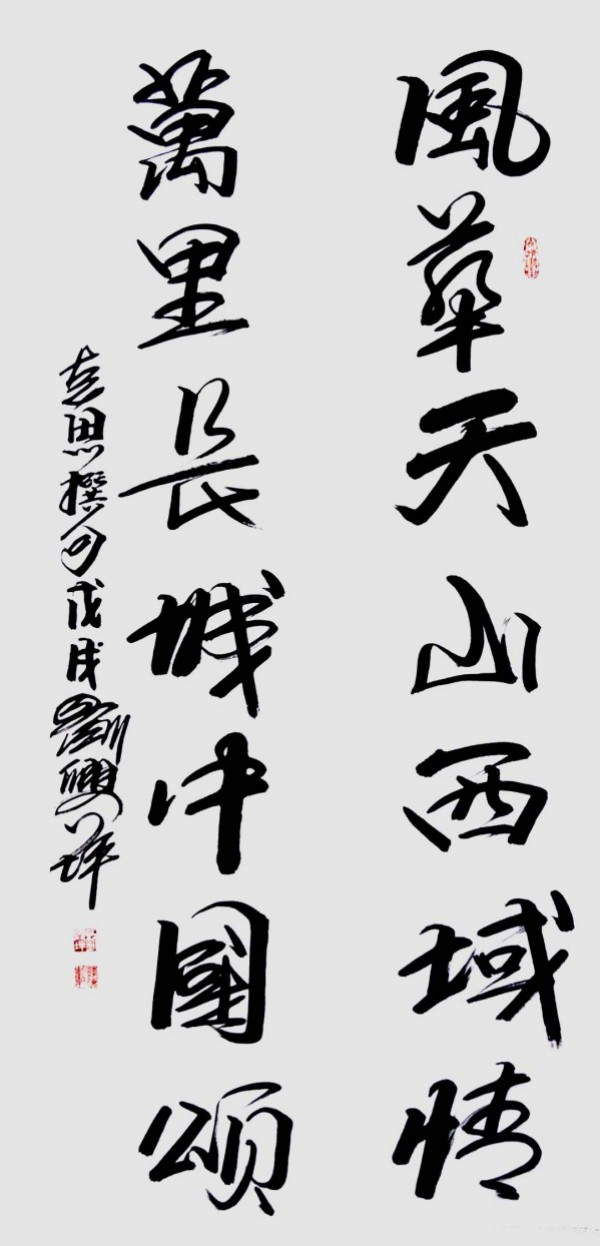 風華天山西域情
萬里長城中國頌
志思撰句戊戌劉雙平